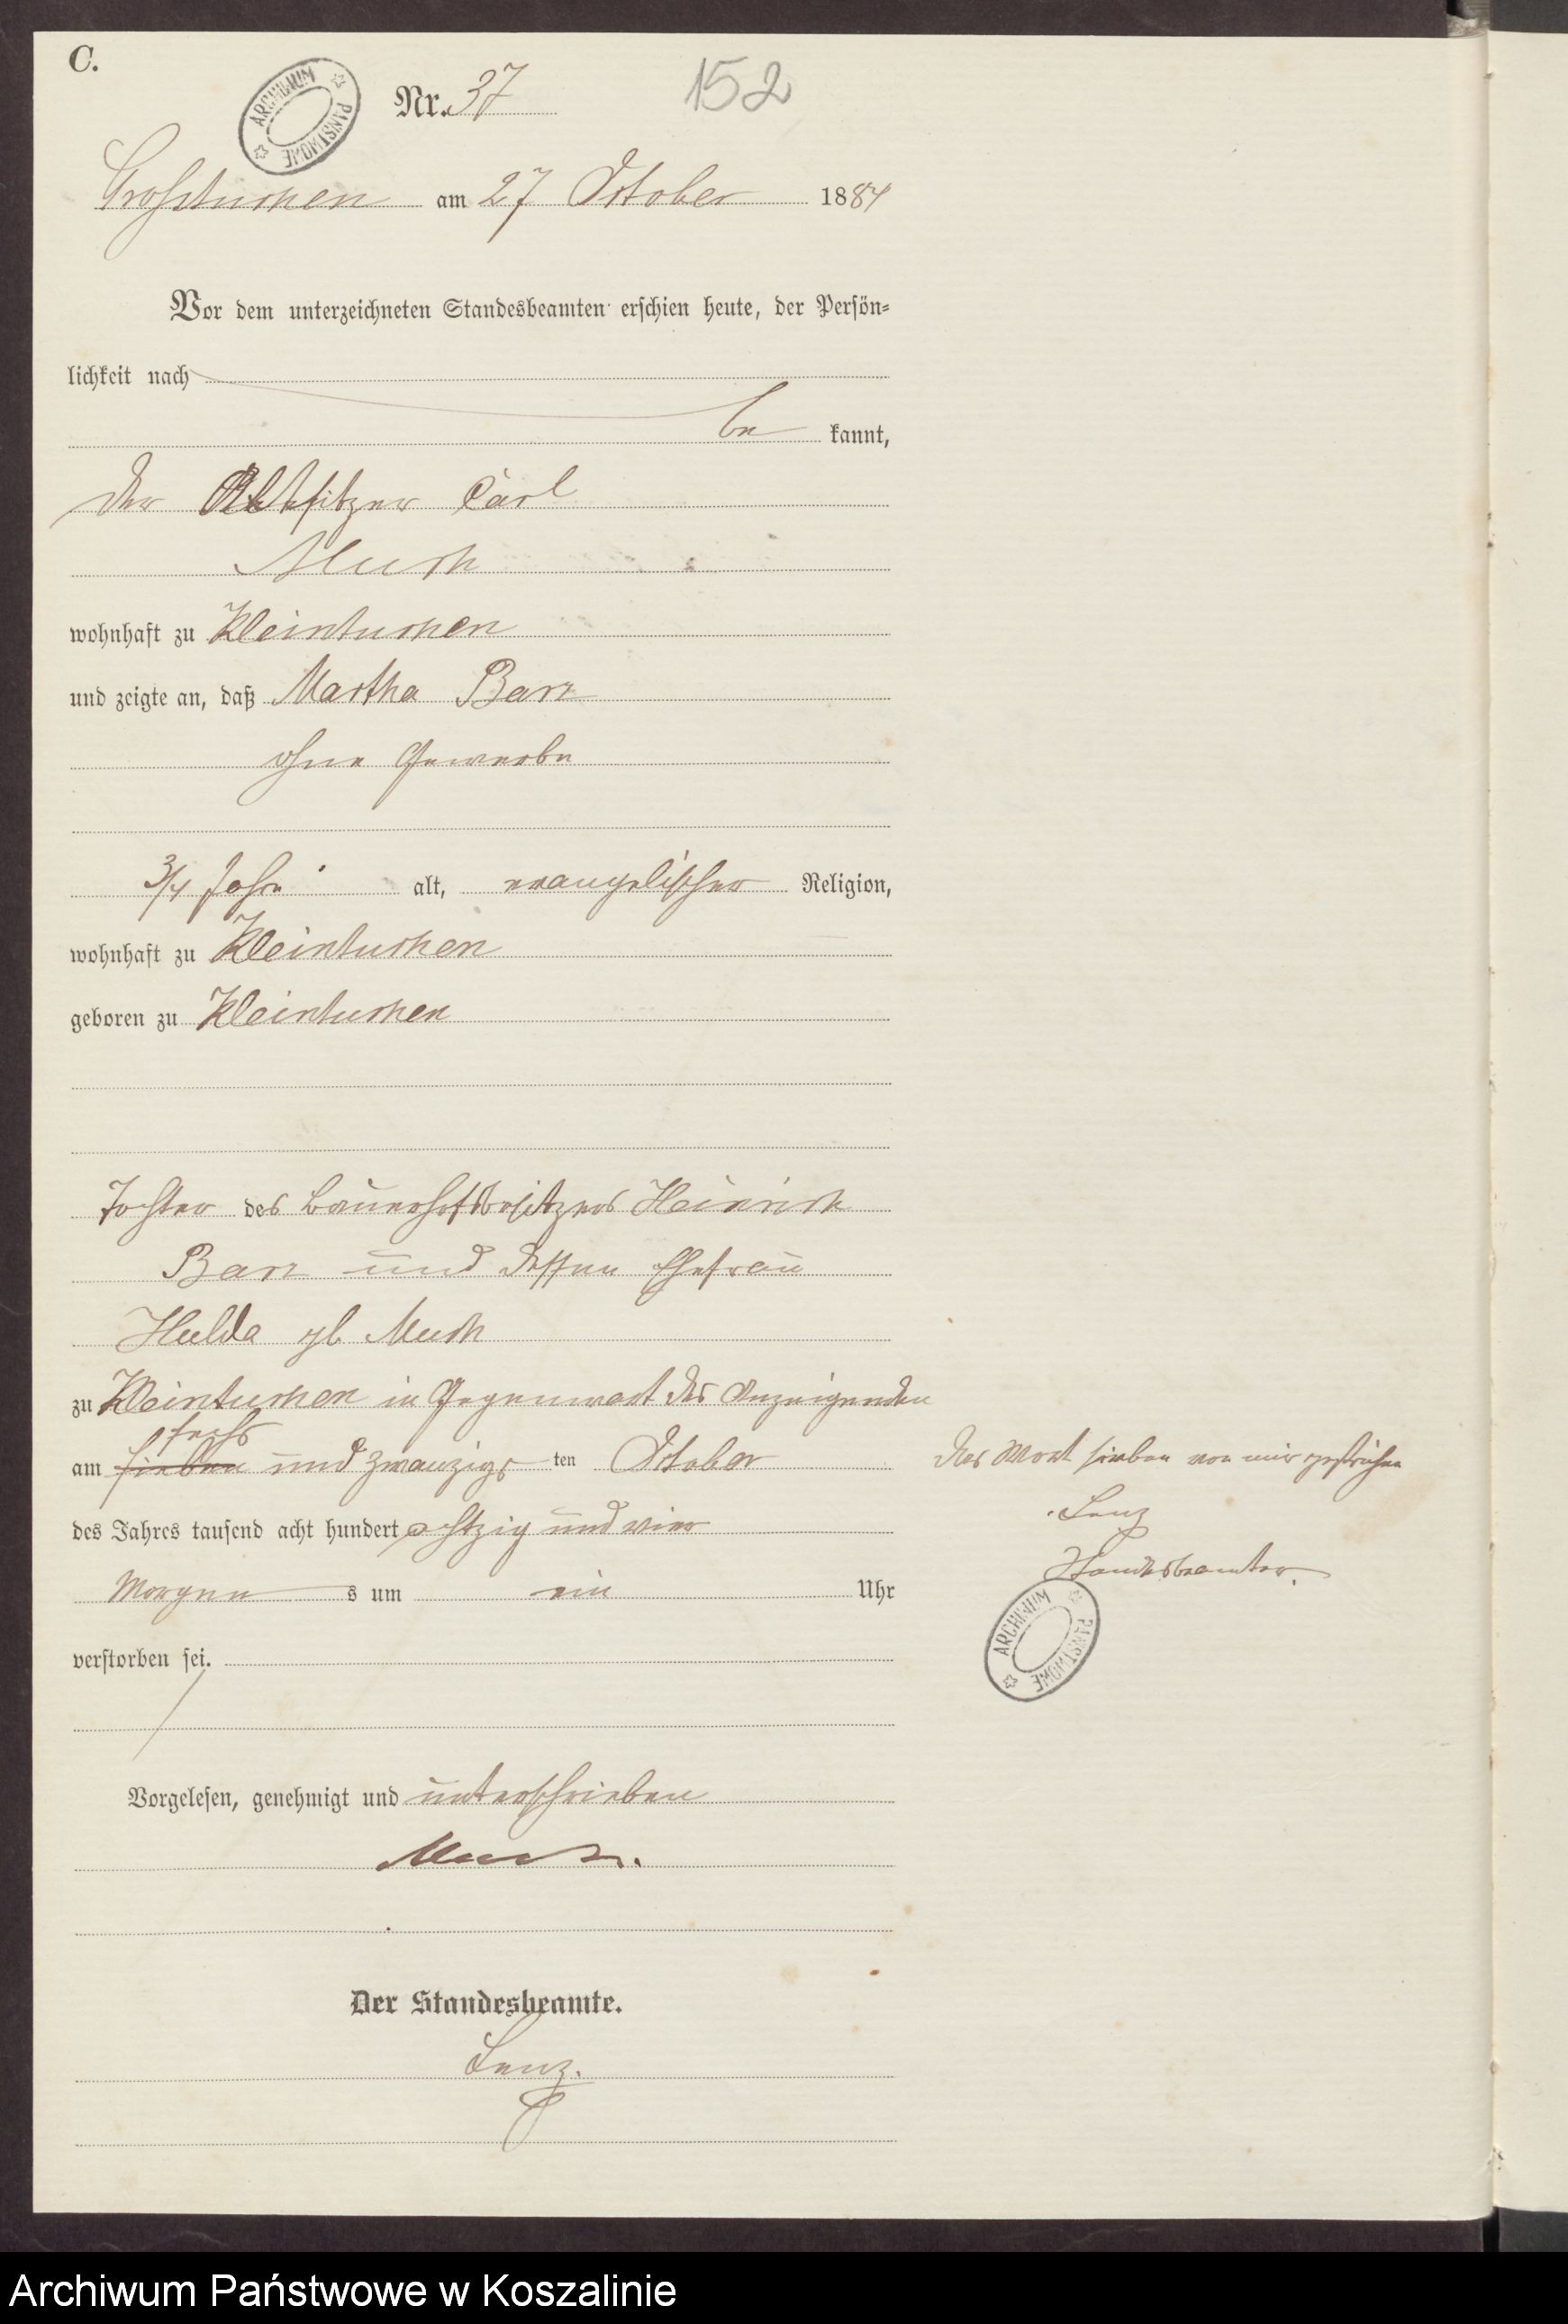 C.
ARCHIWUM PAŃSTWOWE
Nr. 37
152
Großtuchen am 27 October 1884
Vor dem unterzeichneten Standesbeamten erschien heute, der Persön=
lichkeit nach
be kannt,
der Altsitzer Carl
Much
wohnhaft zu Kleintuchen
und zeigte an, daß Martha Barz
ohne Gewerbe
3/4 Jahr alt, evangelischer Religion,
wohnhaft zu Kleintuchen
geboren zu Kleintuchen
Tochter des Bauerhofsbesitzers Heinrich
Barz und dessen Ehefrau
Hulda gb Much
zu Kleintuchen in Gegenwart des Anzeigenden
sechs
am sieben und zwanzigs ten October
des Jahres tausend acht hundert achtzig und vier
Morgen s um ein Uhr
verstorben sei.
Das Wort sieben von mir gestrichen
Lenz
Standesbeamter.
ARCHIWUM PAŃSTWOWE
Vorgelesen, genehmigt und unterschrieben
Much.
Der Standesbeamte.
Lenz.
Archiwum Państwowe w Koszalinie